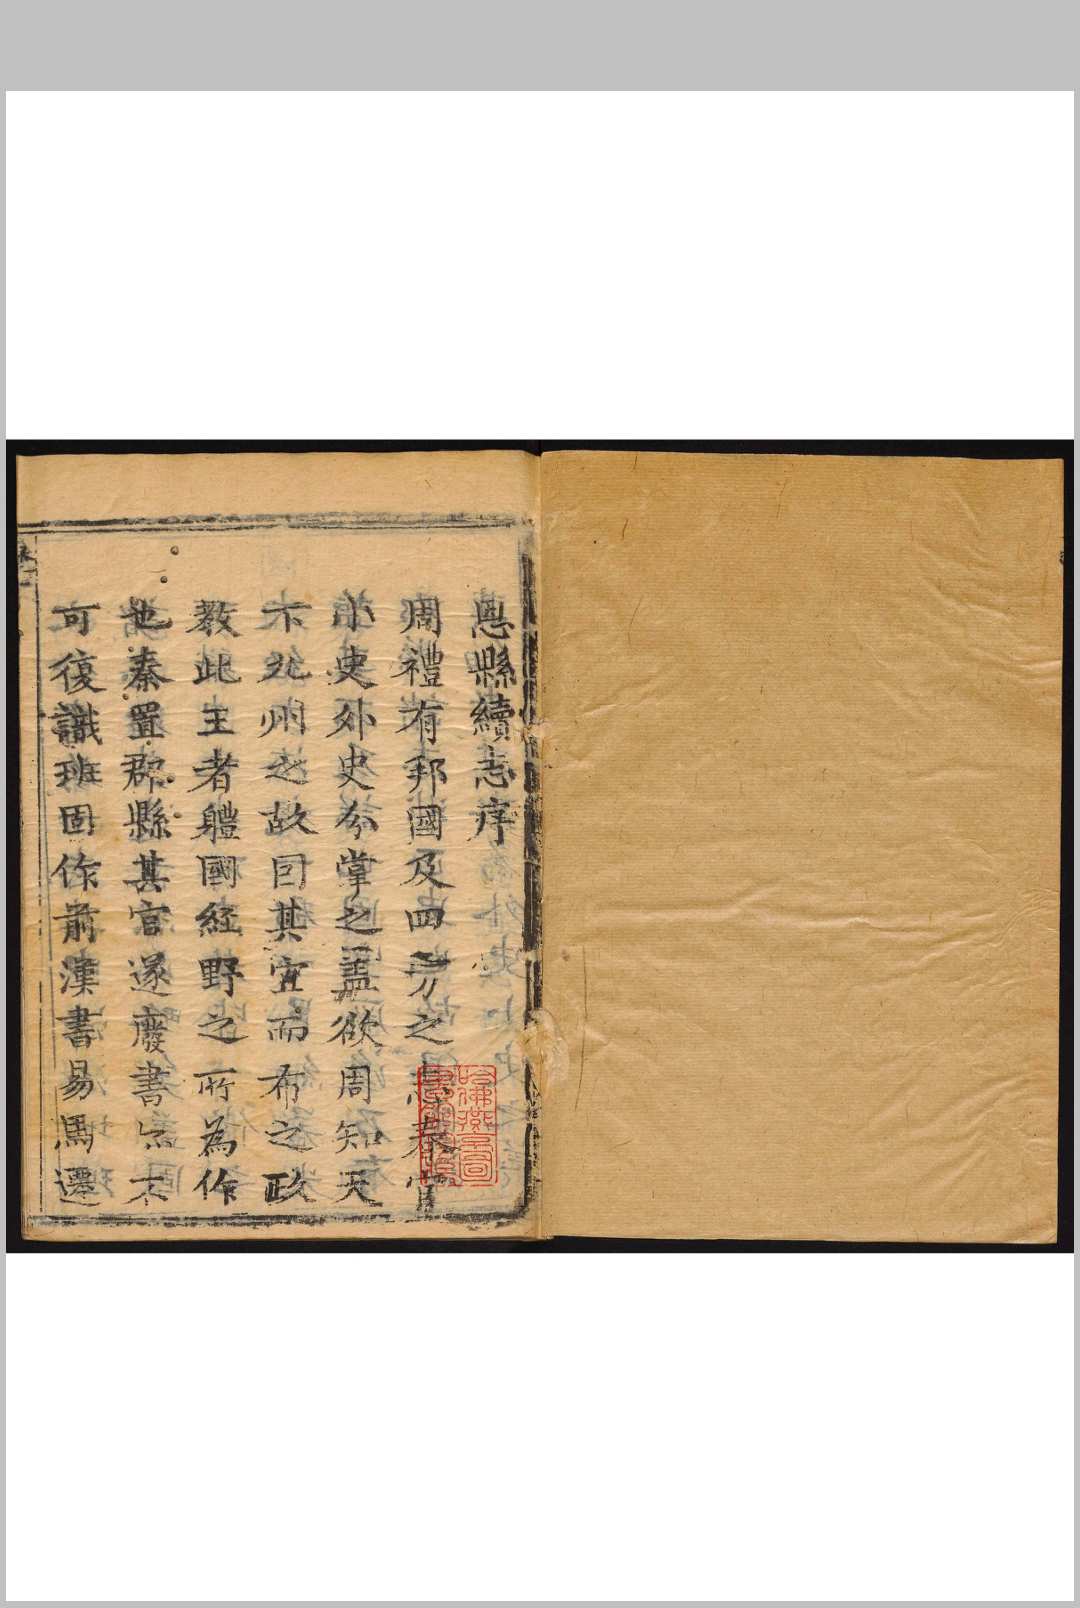 恩縣續志序
周禮有邦國及四方之志春官
小史外史分掌之蓋欲周知天
下九州之故因其宜而布之政
教此王者體國經野之所為作
也秦置郡縣其官遂廢書亡不
可復識班固作前漢書易馬遷
哈佛燕